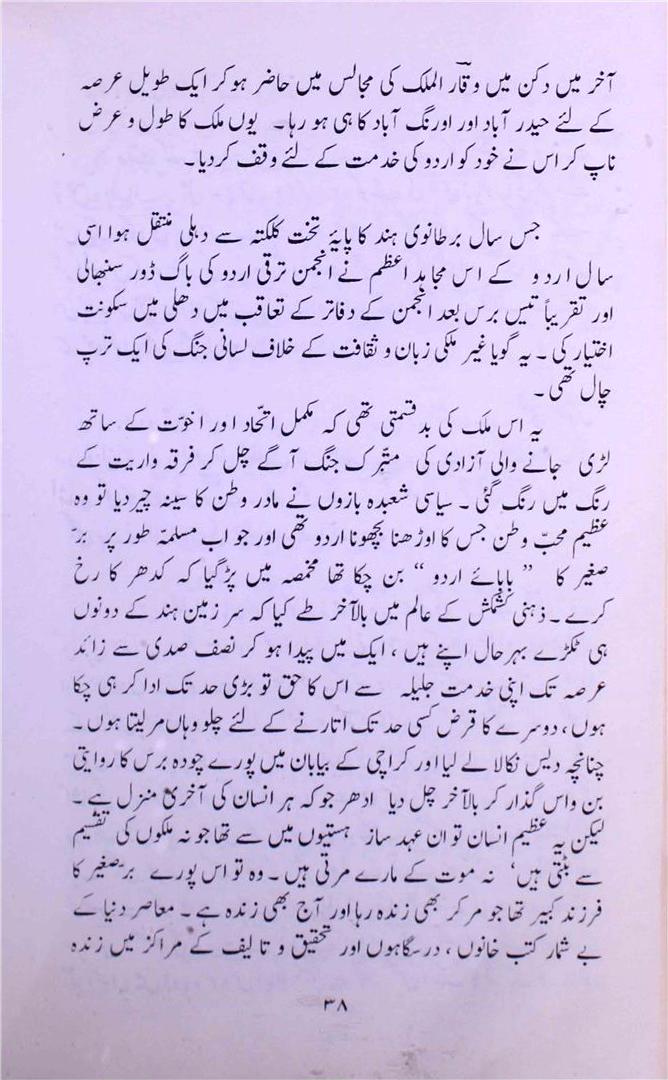 آخر میں دکن میں وقار الملک کی مجالس میں حاضر ہوکر ایک طویل عرصہ
کے لئے حیدر آباد اور اورنگ آباد کا ہی ہو رہا۔ یوں ملک کا طول و عرض
ناپ کر اس نے خود کو اردو کی خدمت کے لئے وقف کردیا۔
جس سال برطانوی ہند کا پایۂ تخت کلکتہ سے دہلی منتقل ہوا اسی
سال اردو کے اس مجاہد اعظم نے انجمن ترقی اردو کی باگ ڈور سنبھالی
اور تقریباً تیس برس بعد انجمن کے دفاتر کے تعاقب میں دھلی میں سکونت
اختیار کی۔ یہ گویا غیر ملکی زبان و ثقافت کے خلاف لسانی جنگ کی ایک ترپ
چال تھی۔
یہ اس ملک کی بد قسمتی تھی کہ مکمل اتّحاد اور اخوّت کے ساتھ
لڑی جانے والی آزادی کی متبّرک جنگ آگے چل کر فرقہ واریت کے
رنگ میں رنگ گئی۔ سیاسی شعبدہ بازوں نے مادر وطن کا سینہ چیر دیا تو وہ
عظیم محبّ وطن جس کا اوڑھنا بچھونا اردو تھی اور جو اب مسلمہّ طور پر برّ
صغیر کا ”بابائے اردو“ بن چکا تھا مخمصہ میں پڑگیا کہ کدھر کا رخ
کرے۔ ذہنی کشمکش کے عالم میں بالآخر طے کیا کہ سرزمین ہند کے دونوں
ہی ٹکڑے بہرحال اپنے ہیں، ایک میں پیدا ہو کر نصف صدی سے زائد
عرصہ تک اپنی خدمت جلیلہ سے اس کا حق تو بڑی حد تک ادا کر ہی چکا
ہوں، دوسرے کا قرض کسی حد تک اتارنے کے لئے چلو وہاں مر لیتا ہوں۔
چنانچہ دیس نکالا لے لیا اور کراچی کے بیابان میں پورے چودہ برس کا روایتی
بن واس گذار کر بالآخر چل دیا ادھر جو کہ ہر انسان کی آخری منزل ہے۔
لیکن یہ عظیم انسان تو ان عہد ساز ہستیوں میں سے تھا جو نہ ملکوں کی تقسیم
سے بٹتی ہیں، نہ موت کے مارے مرتی ہیں۔ وہ تو اس پورے برصغیر کا
فرزند کبیر تھا جو مر کر بھی زندہ رہا اور آج بھی زندہ ہے۔ معاصر دنیا کے
بے شمار کتب خانوں، درسگاہوں اور تحقیق و تالیف کے مراکز میں زندہ
۳۸